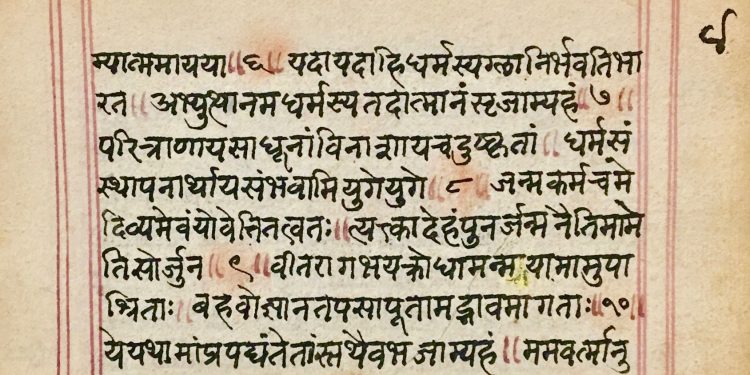 ४
म्यात्ममायया॥६॥ यदायदाहिधर्मस्यग्लानिर्भवतिभा
रत अभ्युत्थानमधर्मस्यतदात्मानंसृजाम्यहं॥७॥
परित्राणायसाधूनांविनाशायचदुष्कृतां॥ धर्मसं
स्थापनार्थायसंभवामियुगेयुगे॥८॥ जन्मकर्मचमे
दिव्यमेवंयोवेत्तितत्वतः॥त्यक्त्कादेहंपुनर्जन्मनैतिमामे
तिसोर्जुन॥९॥वीतरागभयक्रोधामन्मयामामुपा
श्रिताः॥बहवोज्ञानतपसापूतामद्भावमागताः॥१०॥
येयथामांप्रपद्यंतेतांस्तथैवभजाम्यहं॥ममवर्त्मानु